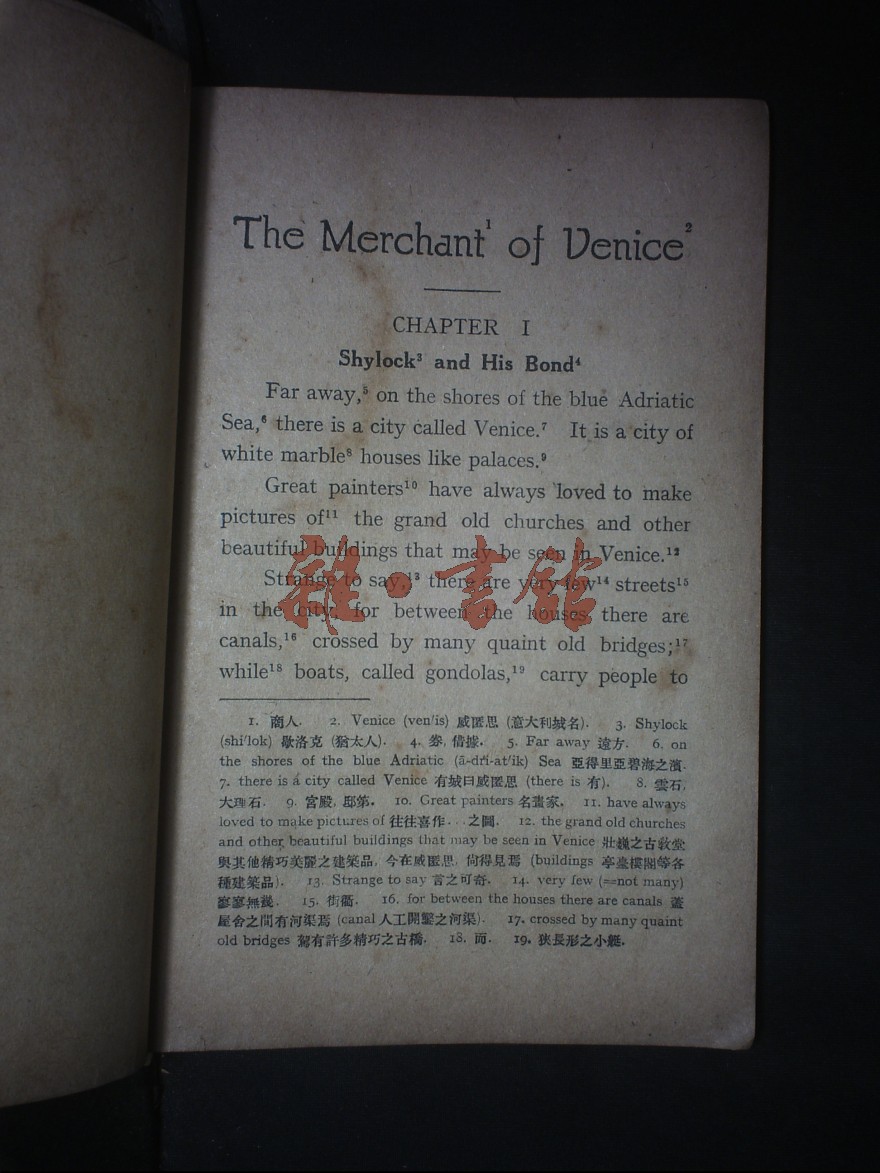 The Merchant¹ of Venice²
CHAPTER I
Shylock³ and His Bond⁴
Far away,⁵ on the shores of the blue Adriatic
Sea,⁶ there is a city called Venice.⁷ It is a city of
white marble⁸ houses like palaces.⁹
Great painters¹⁰ have always loved to make
pictures of¹¹ the grand old churches and other
beautiful buildings that may be seen in Venice.¹²
Strange to say,¹³ there are very few¹⁴ streets¹⁵
in the city, for between the houses there are
canals,¹⁶ crossed by many quaint old bridges;¹⁷
while¹⁸ boats, called gondolas,¹⁹ carry people to
雜·書館
1. 商人. 2. Venice (ven'is) 威匿思 (意大利城名). 3. Shylock
(shi'lok) 歇洛克 (猶太人). 4. 券, 借據. 5. Far away 遠方. 6. on
the shores of the blue Adriatic (ā-dri-at'ik) Sea 亞得里亞碧海之濱.
7. there is a city called Venice 有城曰威匿思 (there is 有). 8. 雲石,
大理石. 9. 宮殿, 邸第. 10. Great painters 名畫家. 11. have always
loved to make pictures of 往往喜作...之圖. 12. the grand old churches
and other beautiful buildings that may be seen in Venice 壯巍之古敎堂
與其他精巧美麗之建築品, 今在威匿思, 尙得見焉 (buildings 亭臺樓閣等各
種建築品). 13. Strange to say 言之可奇. 14. very few (==not many)
寥寥無幾. 15. 街衢. 16. for between the houses there are canals 蓋
屋舍之間有河渠焉 (canal 人工開鑿之河渠). 17. crossed by many quaint
old bridges 駕有許多精巧之古橋. 18. 而. 19. 狹長形之小艇.